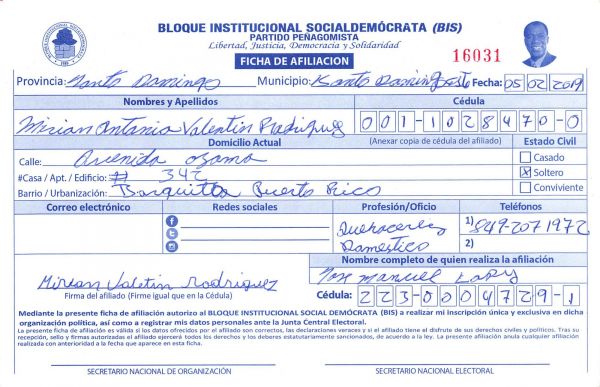 BLOQUE INSTITUCIONAL SOCIALDEMÓCRATA (BIS)
PARTIDO PEÑAGOMISTA
Libertad, Justicia, Democracia y Solidaridad
FICHA DE AFILIACION
16031
Provincia: Santo Domingo Municipio: Santo Domingo Este Fecha: 05 02 2019
Nombres y Apellidos Cédula
Mirian Antania Valentin Rodriguez 001-1028470-0
Domicilio Actual (Anexar copia de cédula del afiliado) Estado Civil
Calle: Avenida Ozama
Casado
#Casa / Apt. / Edificio: # 342
X Soltero
Barrio / Urbanización: Barquitta Puerto Rico
Conviviente
Correo electrónico Redes sociales Profesión/Oficio Teléfonos
Quehaceres Domestico
1) 849-207 1972
2)
Nombre completo de quien realiza la afiliación
Mirian Valetin Rodriguez
Jose Manuel
Firma del afiliado (Firme igual que en la Cédula)
Cédula: 223-0004729-1
Mediante la presente ficha de afiliación autorizo al BLOQUE INSTITUCIONAL SOCIAL DEMÓCRATA (BIS) a realizar mi inscripción única y exclusiva en dicha
organización política, así como a registrar mis datos personales ante la Junta Central Electoral.
La presente ficha de afiliación es válida si los datos ofrecidos por el afiliado son correctos, las declaraciones verases y si el afiliado tiene el disfrute de sus derechos civiles y políticos. Tras su
recepción, sello y firmas autorizadas el afiliado ejercerá todos los derechos y los deberes estatutariamente sancionados, de acuerdo a la ley. La presente afiliación anula cualquier afiliación
realizada con anterioridad a la fecha que aparece en esta ficha.
SECRETARIO NACIONAL DE ORGANIZACIÓN SECRETARIO NACIONAL ELECTORAL